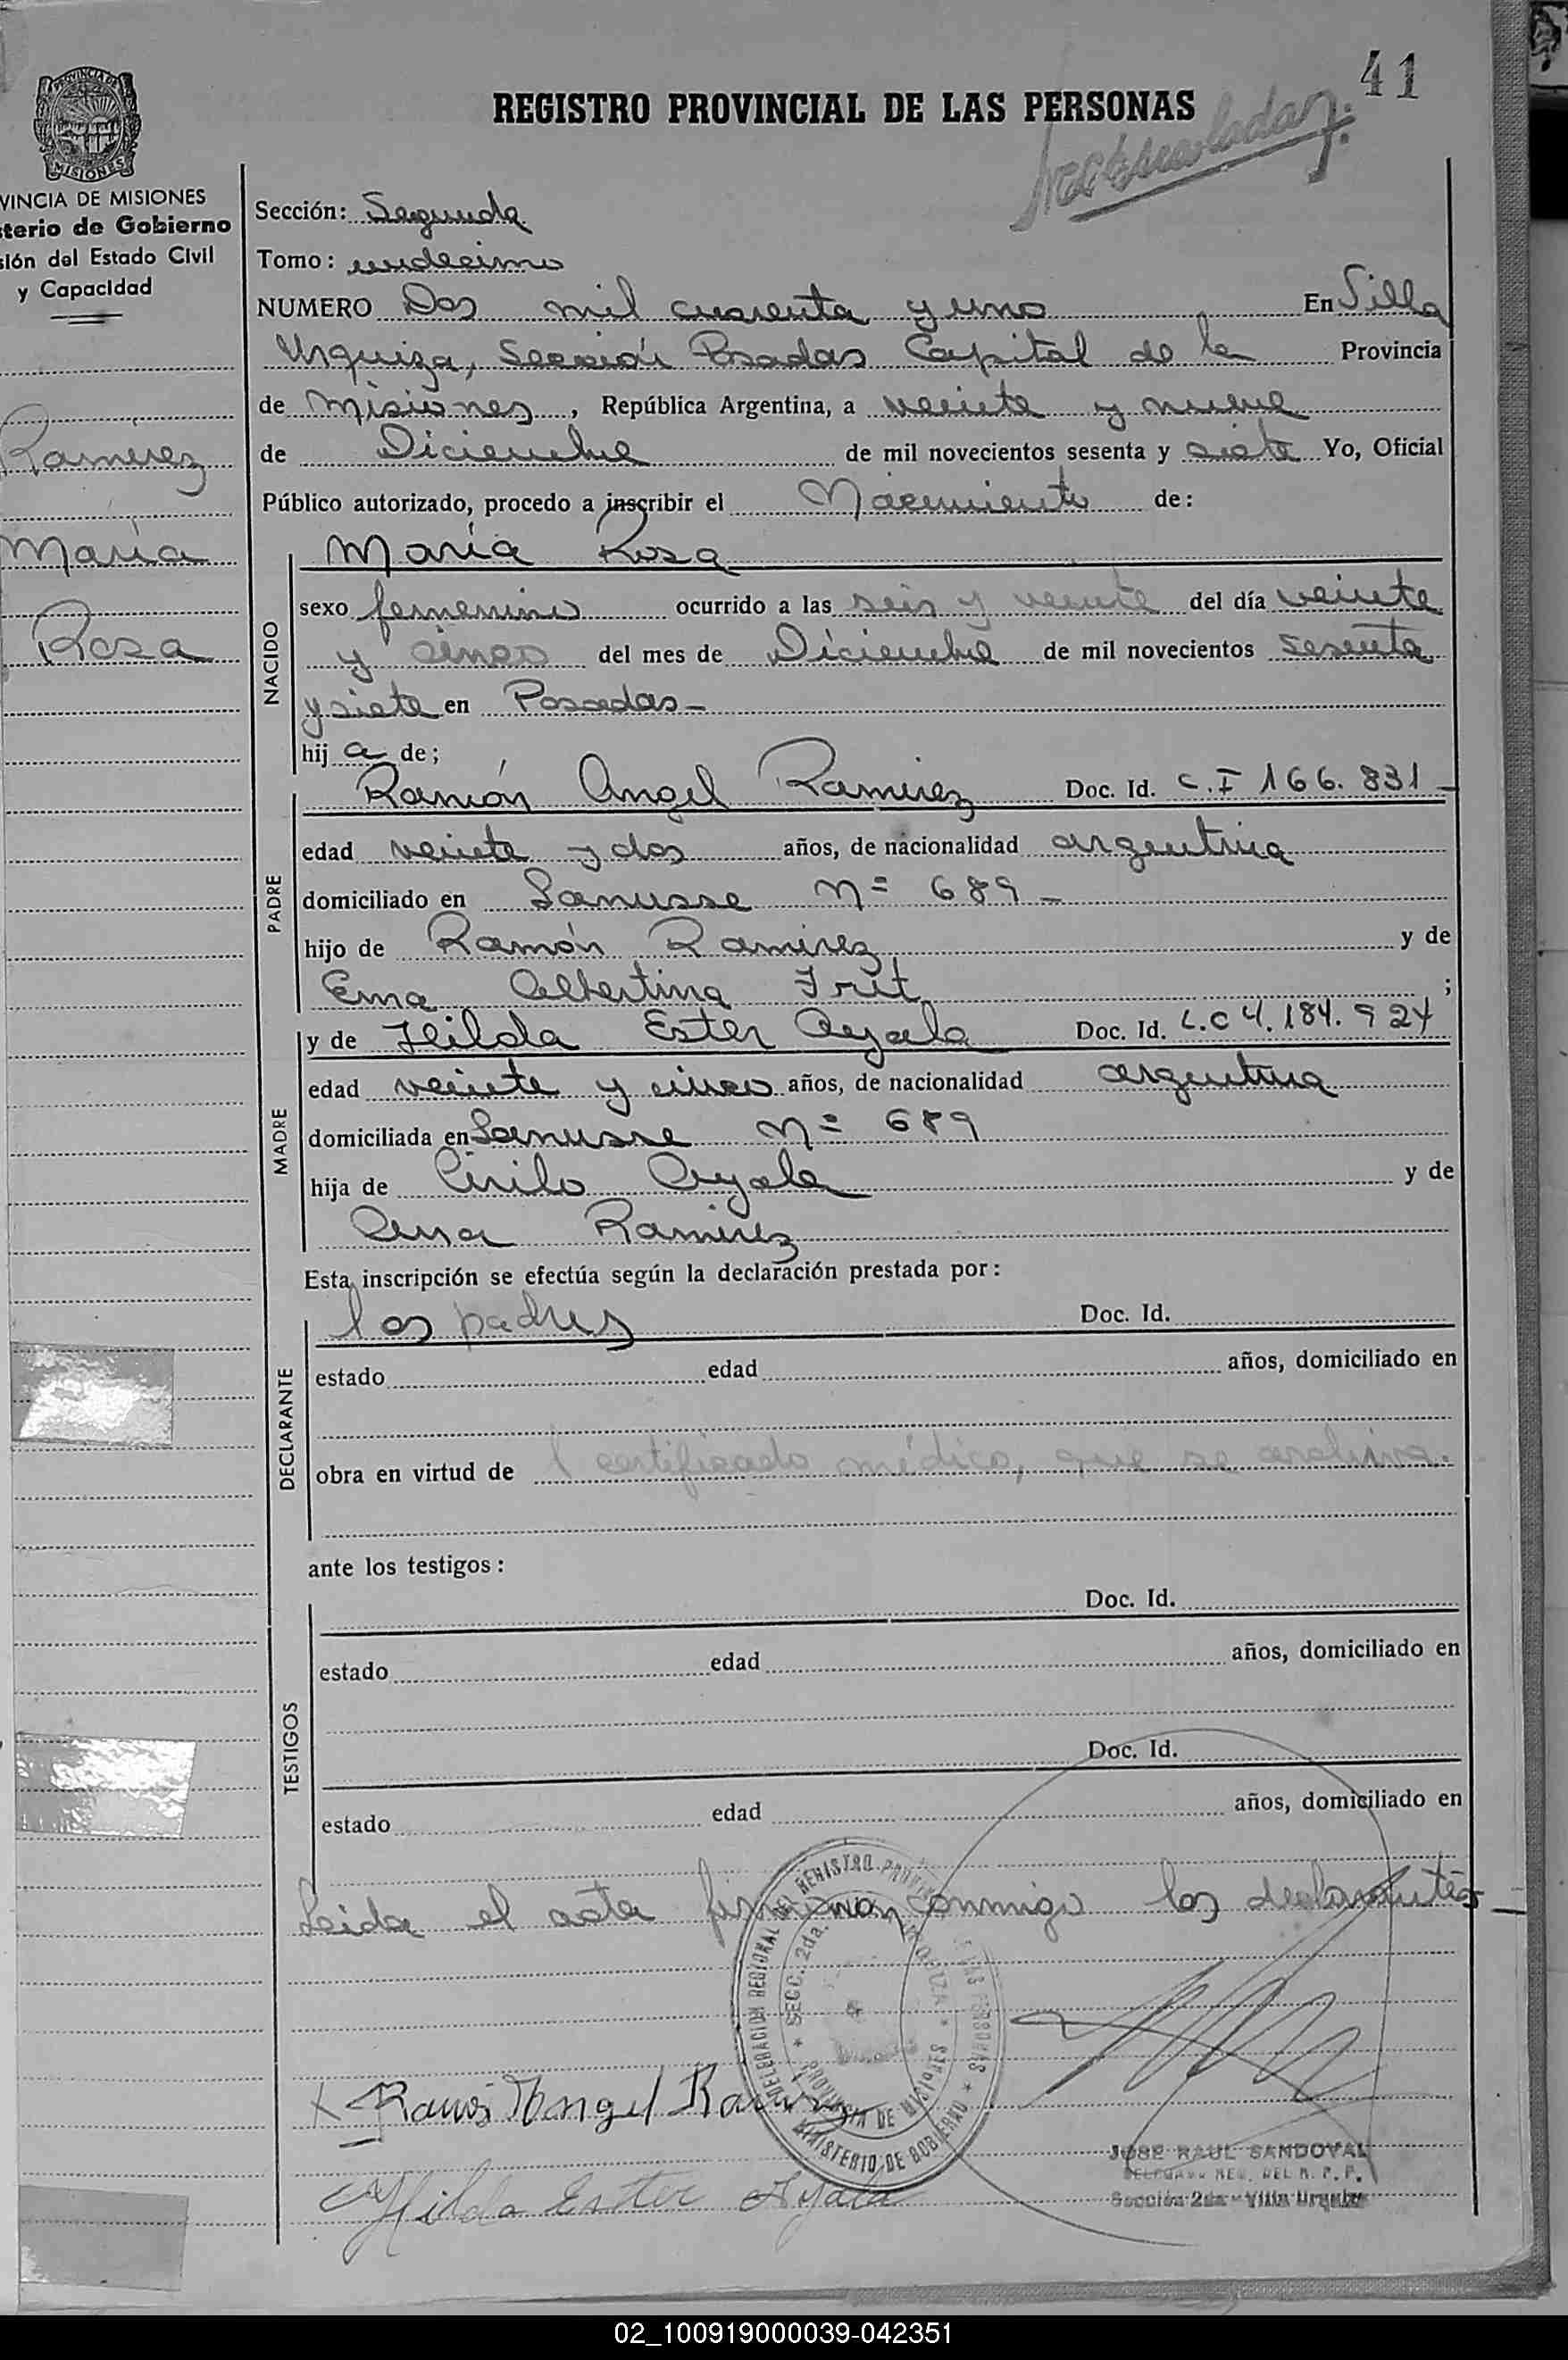 41
REGISTRO PROVINCIAL DE LAS PERSONAS
MISIONES
VINCIA DE MISIONES
sterio de Gobierno
sión del Estado Civil
y Capacidad
Ramirez
María
Rosa
Sección: Segunda
Tomo: undecimo
NUMERO Dos mil cuarenta y uno En Villa
Urquiza, Sección Posadas Capital de la Provincia
de Misiones, República Argentina, a veinte y nueve
de Diciembre de mil novecientos sesenta y siete Yo, Oficial
Público autorizado, procedo a inscribir el Nacimiento de:
NACIDO
María Rosa
sexo femenino ocurrido a las seis y veinte del día veinte
y cinco del mes de Diciembre de mil novecientos sesenta
y siete en Posadas-
hij a de;
PADRE
Ramón Angel Ramirez Doc. Id. C.I 166.831-
edad veinte y dos años, de nacionalidad argentina
domiciliado en Lanusse Nº 689-
hijo de Ramón Ramirez y de
Ema Albertina Frit ;
MADRE
y de Hilda Ester Ayala Doc. Id. L.C 4.184.924
edad veinte y cinco años, de nacionalidad argentina
domiciliada en Lanusse Nº 689
hija de Cirilo Ayala y de
Ana Ramirez
Esta inscripción se efectúa según la declaración prestada por:
DECLARANTE
los padres Doc. Id.
estado edad años, domiciliado en
obra en virtud de l certificado médico, que se archiva.
ante los testigos:
TESTIGOS
Doc. Id.
estado edad años, domiciliado en
Doc. Id.
estado edad años, domiciliado en
Leida el acta firman conmigo los declarantes-
DELEGACION REGIONAL DEL REGISTRO PROVINCIAL DE LAS PERSONAS
* SECC. 2da. URQUIZA *
PROVINCIA DE MISIONES
* MINISTERIO DE GOBIERNO *
x Ramón Angel Ramirez
Hilda Ester Ayala
JOSE RAUL SANDOVAL
Sección 2da - Villa Urquiza
02_100919000039-042351